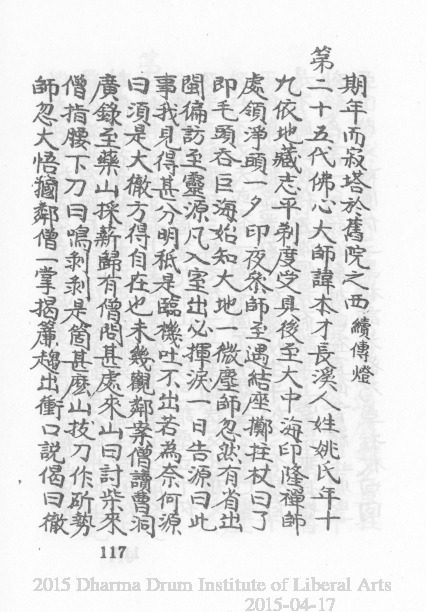 期年而寂塔於舊院之西 續傳燈
第二十五代佛心大師諱本才長溪人姓姚氏年十
九依地藏志平剃度受具後至大中海印隆禪師
處領淨頭一夕印夜參師至遇結座擲拄杖曰了
即毛頭吞巨海始知大地一微塵師忽然有省出
閩徧訪至靈源凡入室出必揮淚一日告源曰此
事我見得甚分明秪是臨機吐不出若為奈何源
曰須是大徹方得自在也未幾觀鄰案僧讀曹洞
廣錄至藥山採薪歸有僧問甚處來山曰討柴來
僧指腰下刀曰鳴剥剥是箇甚麽山拔刀作斫勢
師忽大悟摑鄰僧一掌揭簾趨出衝口説偈曰徹
117
2015 Dharma Drum Institute of Liberal Arts
2015-04-17